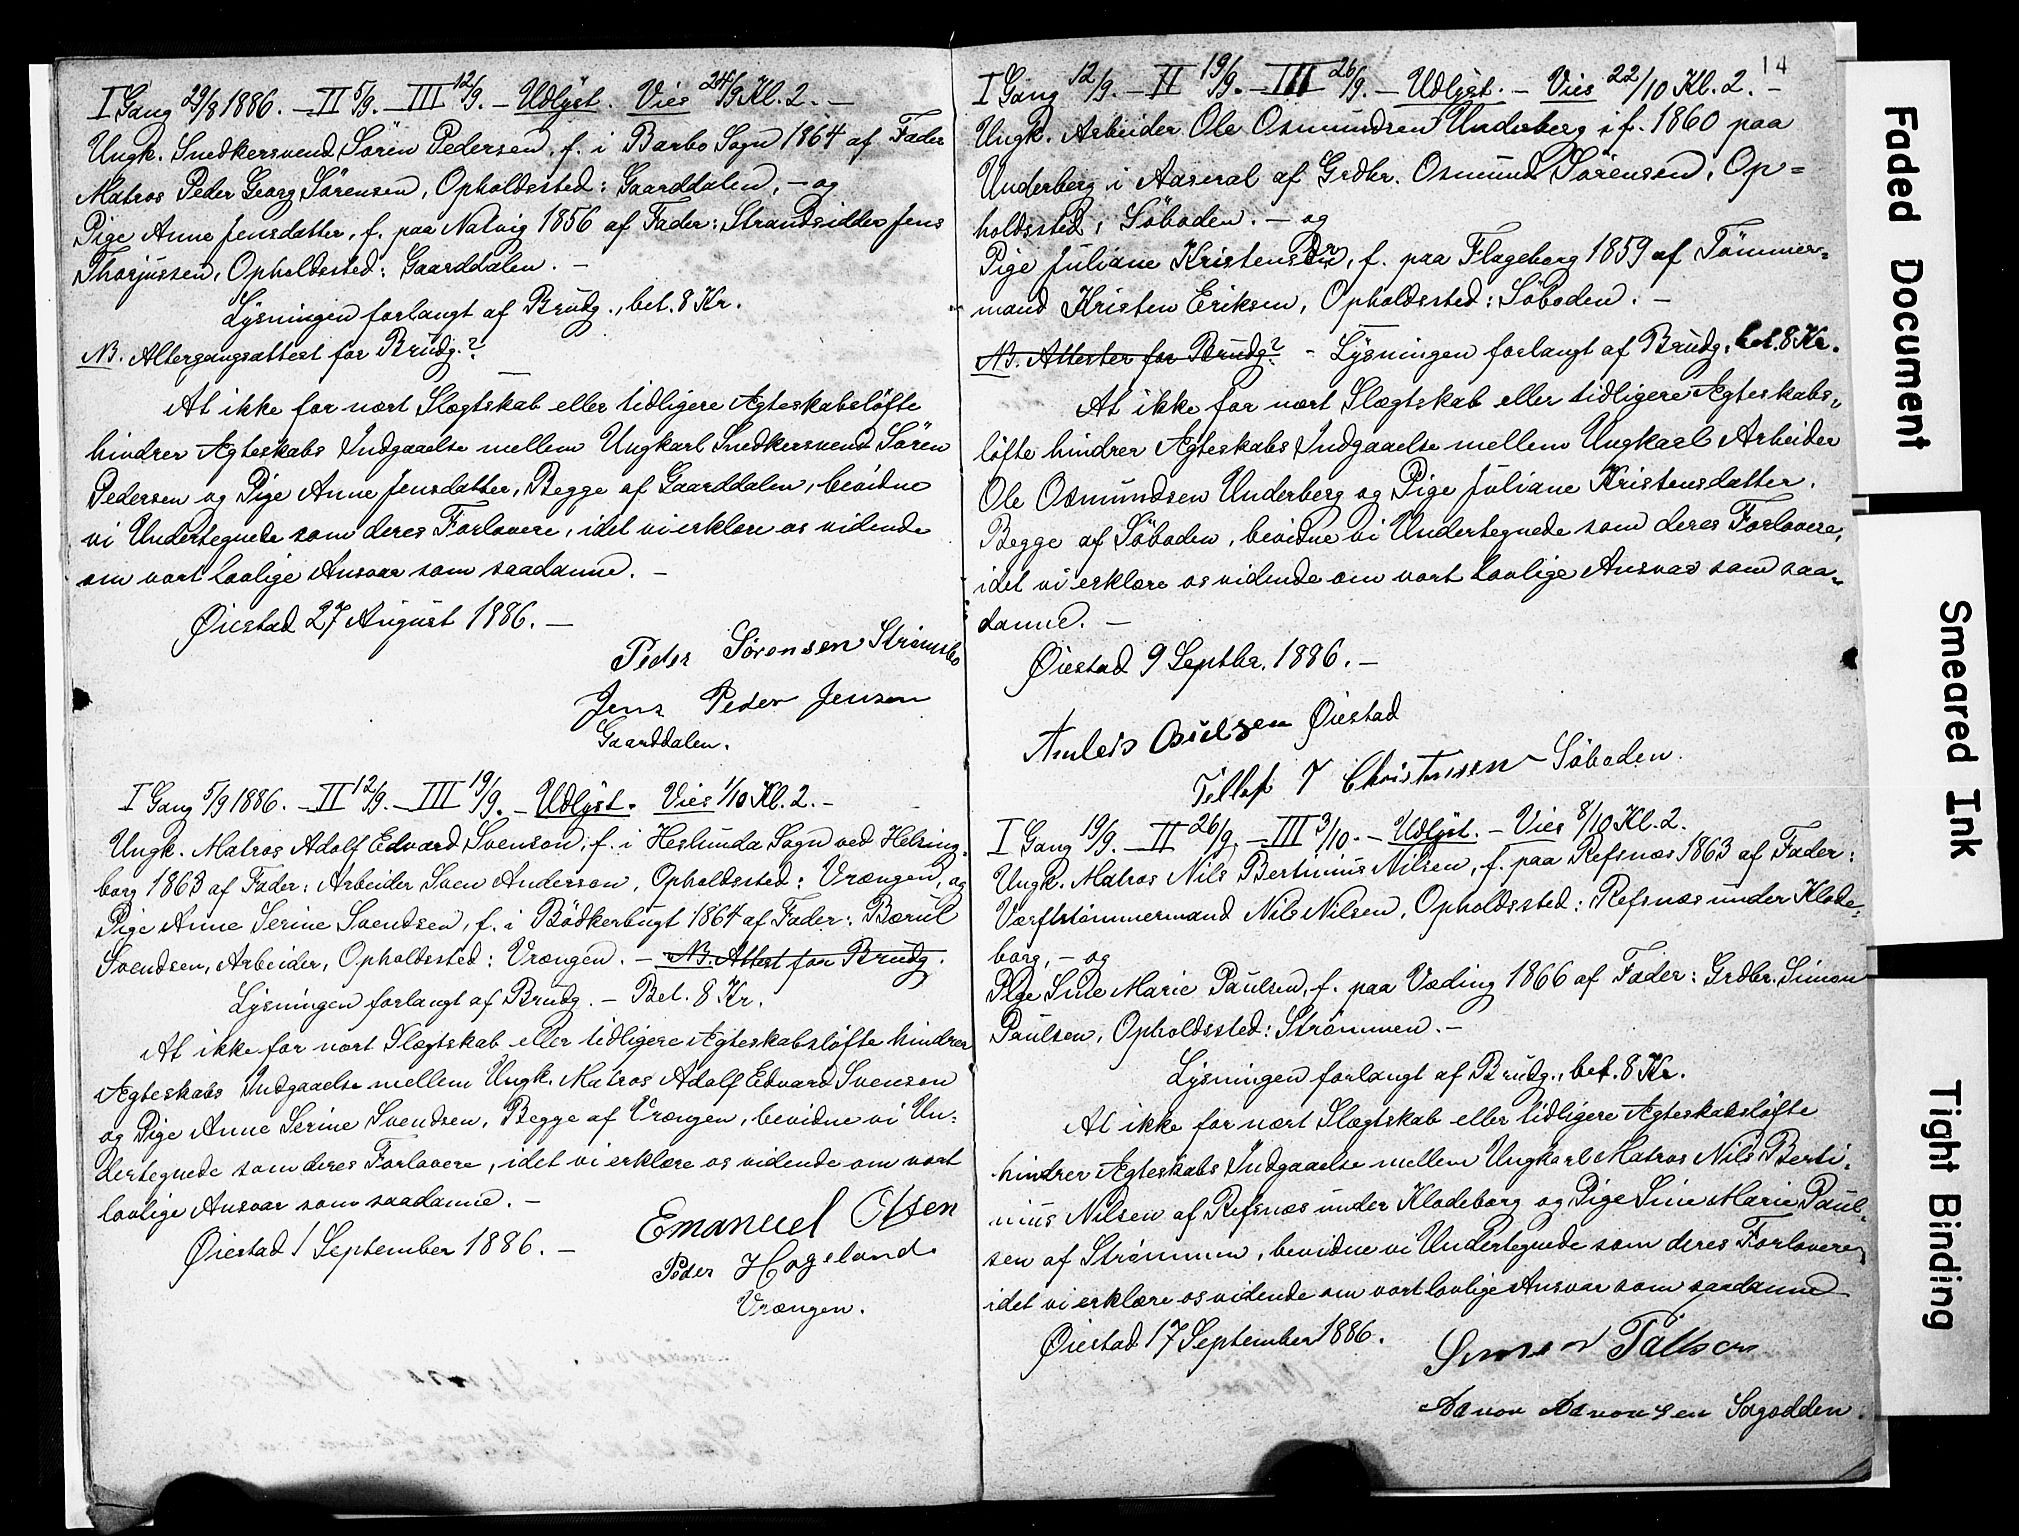 I Gang 29/8 1886. – II 5/9. – III 12/9. – Udlyst. Vies 24/9 Kl. 2. –
Ungk. Snedkersvend Sören Pedersen, f. i Barbo Sogn 1864 af Fader
Matros Peder Georg Sörensen, Opholdssted: Gaarddalen, – og
Pige Anne Jensdatter, f. paa Natvig 1856 af Fader: Strandsidder Jens
Thorjussen, Opholdssted: Gaarddalen. –
Lysningen forlangt af Brudg., bet. 8 Kr.
NB. Altergangsattest for Brudg.?
At ikke for nært Slægtskab eller tidligere Ægteskabsløfte
hindrer Ægteskabs Indgaaelse mellem Ungkarl Snedkersvend Sören
Pedersen og Pige Anne Jensdatter, Begge af Gaarddalen, bevidne
vi Undertegnede som deres Forlovere, idet vi erklære os vidende
om vort lovlige Ansvar som saadanne. –
Øiestad 27 August 1886. –
Peder Sørensen Strømsbo
Jens Peder Jensen
Gaarddalen.
I Gang 5/9 1886. – II 12/9. – III 19/9. – Udlyst. Vies 1/10 Kl. 2. –
Ungk. Matros Adolf Edvard Svenson, f. i Heslunda Sogn ved Helsing-
borg 1863 af Fader: Arbeider Sven Anderson, Opholdssted: Vrængen, og
Pige Anne Serine Svendsen, f. i Bödkerbugt 1864 af Fader: Bærul
Svendsen, Arbeider, Opholdssted: Vrængen. – NB. Attest for Brudg.
Lysningen forlangt af Brudg. – Bet. 8 Kr.
At ikke for nært Slægtskab eller tidligere Ægteskabsløfte hindrer
Ægteskabs Indgaaelse mellem Ungk. Matros Adolf Edvard Svenson
og Pige Anne Serine Svendsen, Begge af Vrængen, bevidne vi Un-
dertegnede som deres Forlovere, idet vi erklære os vidende om vort
lovlige Ansvar som saadanne. –
Øiestad 1 September 1886. –
Emanuel Olsen
Peder Hageland
Vrængen.
14
I Gang 12/9. – II 19/9. – III 26/9. – Udlyst. – Vies 22/10 Kl. 2. –
Ungk. Arbeider Ole Osmundsen Underberg, f. 1860 paa
Underberg i Aaseral af Grdbr. Osmund Sörensen, Op-
holdssted: Söboden. – og
Pige Juliane Kristensdr, f. paa Flageborg 1859 af Tömmer-
mand Kristen Eriksen, Opholdssted: Söboden. –
NB. Attester for Brudg? – Lysningen forlangt af Brudg, bet. 8 Kr.
At ikke for nært Slægtskab eller tidligere Ægteskabs-
løfte hindrer Ægteskabs Indgaaelse mellem Ungkarl Arbeider
Ole Osmundsen Underberg og Pige Juliane Kristensdatter,
Begge af Söboden, bevidne vi Undertegnede som deres Forlovere,
idet vi erklære os vidende om vort lovlige Ansvar som saa-
danne. –
Øiestad 9 Septbr. 1886. –
Øiestad
Tellef T Christensen Söboden.
I Gang 19/9. – II 26/9. – III 3/10. – Udlyst. – Vies 8/10 Kl. 2.
Ungk. Matros Nils Bertinius Nilsen, f. paa Refsnæs 1863 af Fader:
Værftstömmermand Nils Nilsen, Opholdssted: Refsnæs under Klode-
borg, – og
Pige Sine Marie Paulsen, f. paa Væding 1866 af Fader: Grdbr. Simon
Paulsen, Opholdssted: Strömmen. –
Lysningen forlangt af Brudg., bet. 8 Kr.
At ikke for nært Slægtskab eller tidligere Ægteskabsløfte
hindrer Ægteskabs Indgaaelse mellem Ungkarl Matros Nils Berti-
nius Nilsen af Refsnæs under Klodeborg og Pige Sine Marie Paul-
sen af Strömmen, bevidne vi Undertegnede som deres Forlovere,
idet vi erklære os vidende om vort lovlige Ansvar som saadanne
Øiestad 17 September 1886.
Aanon Aanonsen Sagodden.
Faded Document
Smeared Ink
Tight Binding